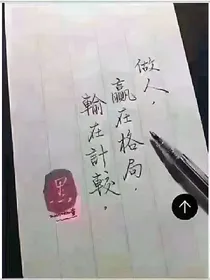 做人，
赢在格局，
輸在計較，